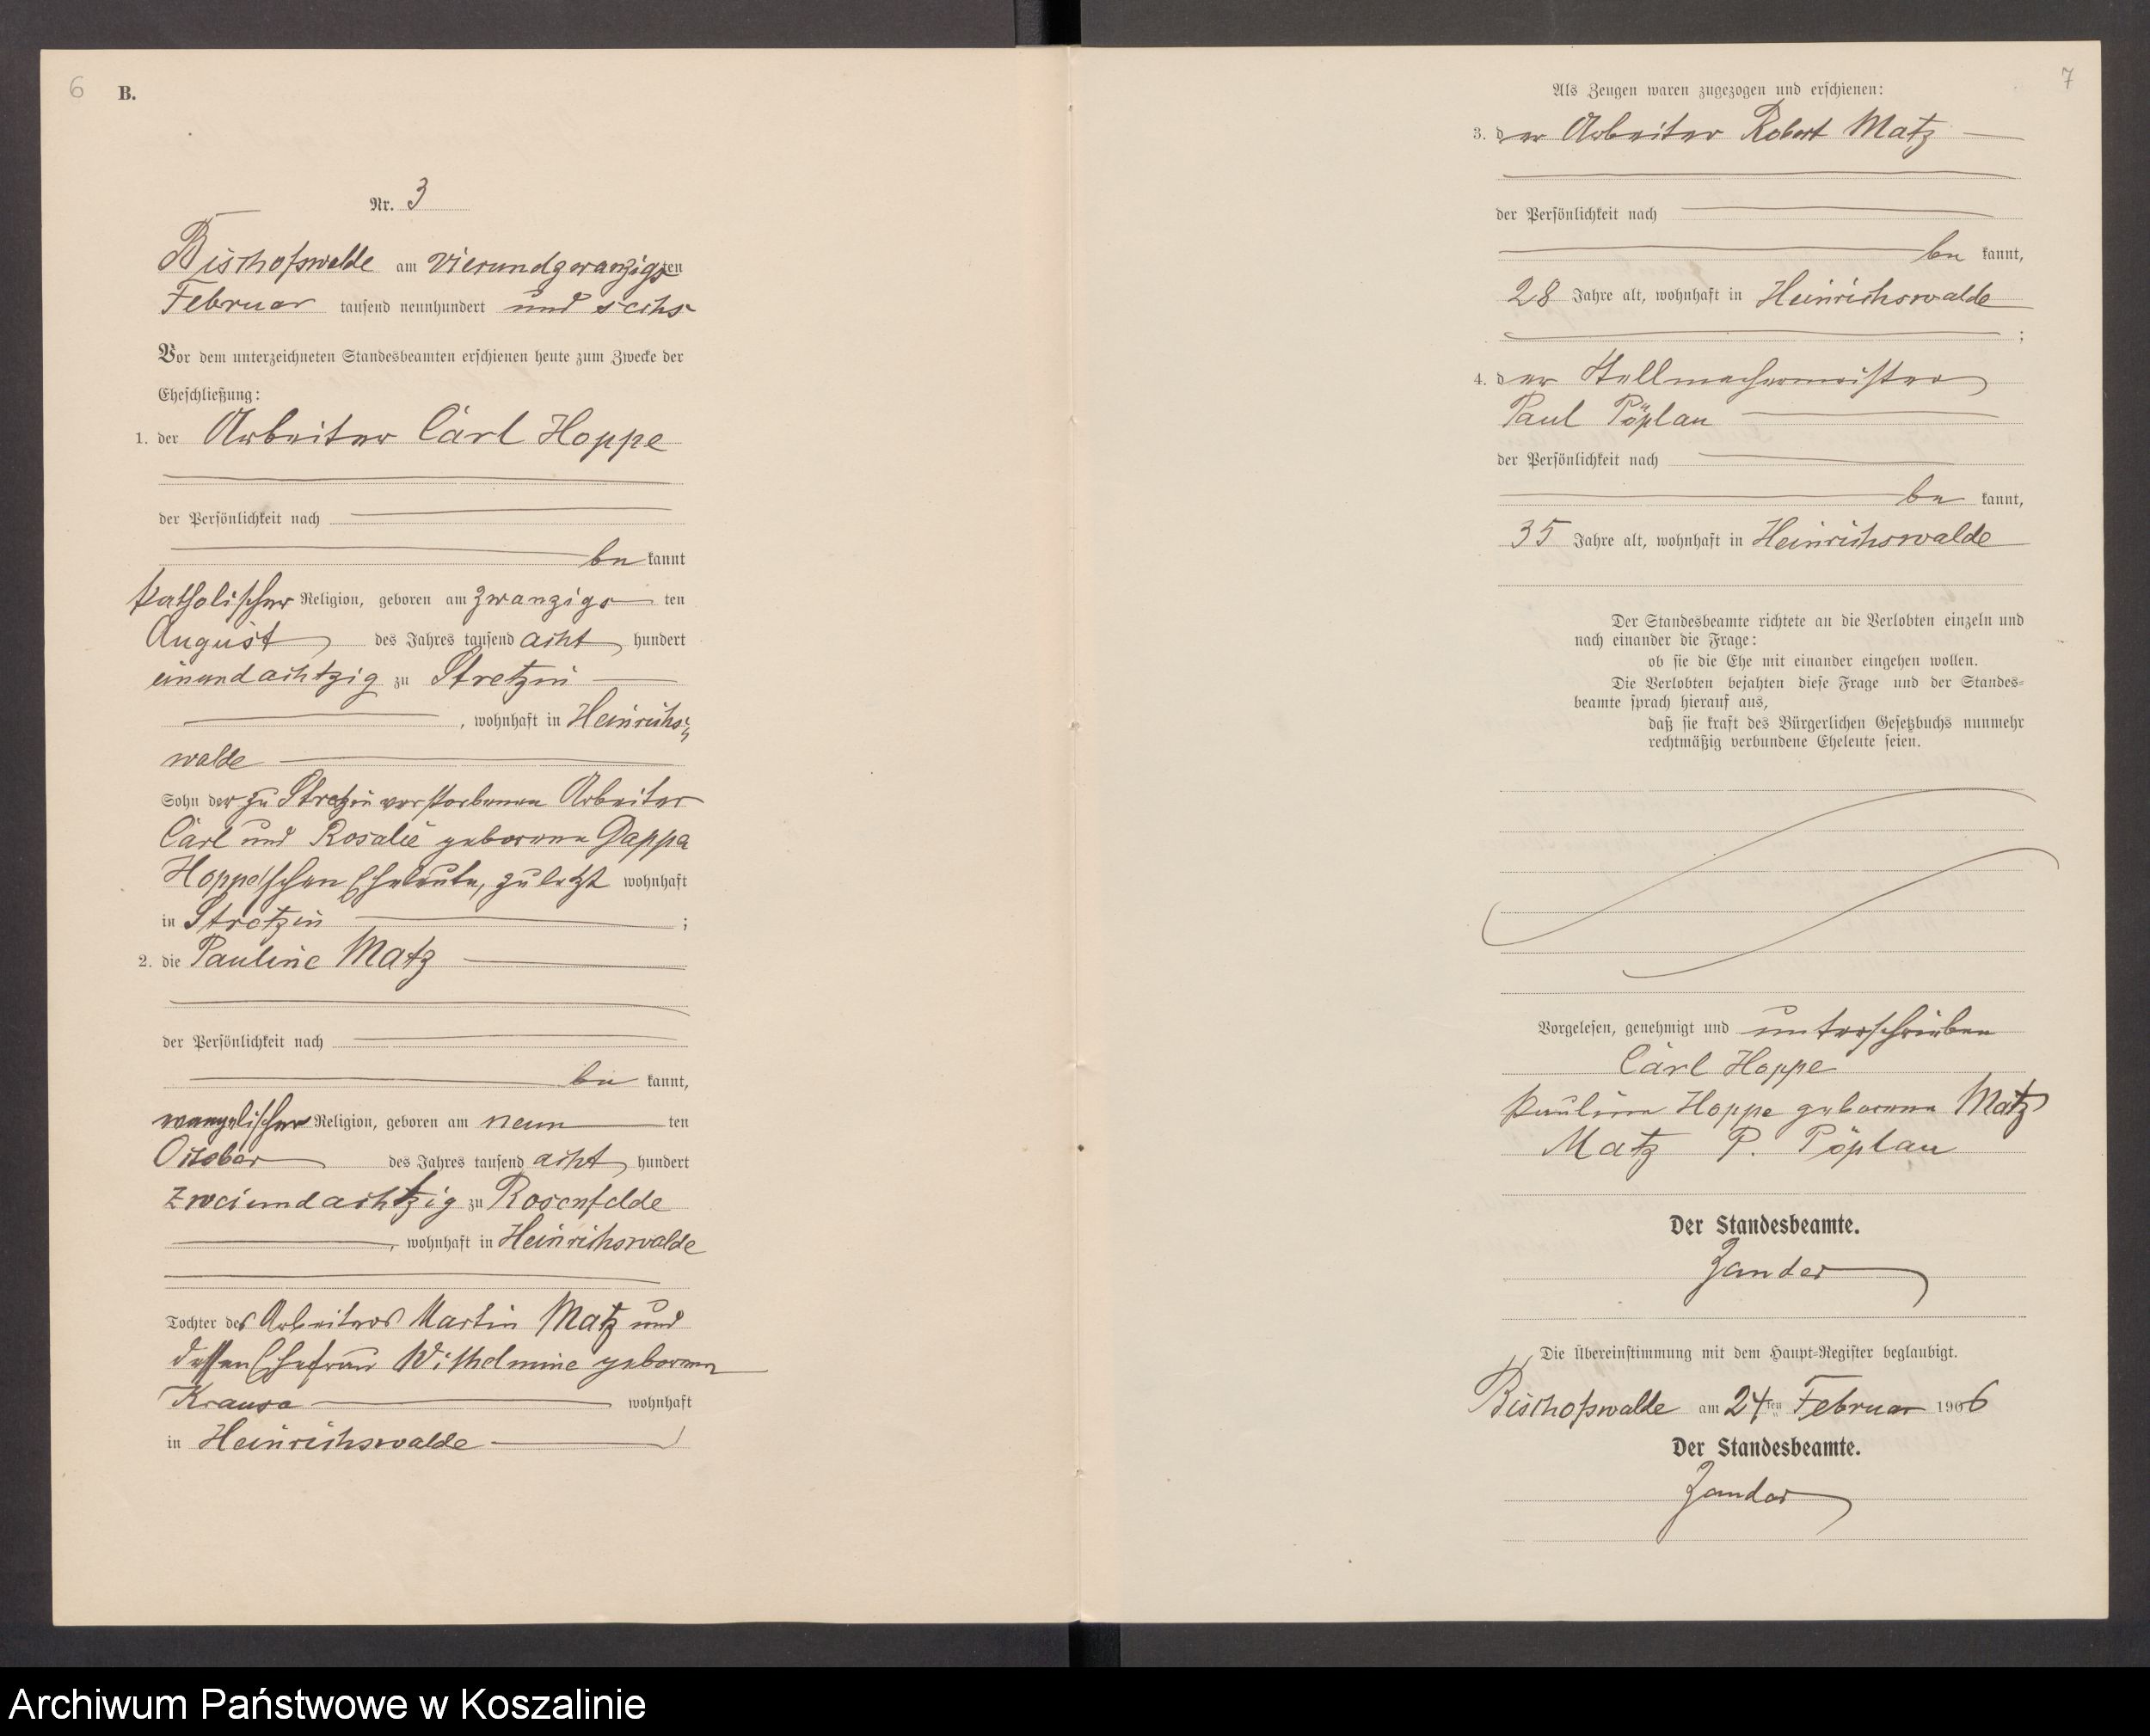 6
B.
Nr. 3
Bischofswalde am vierundzwanzigsten
Februar tausend neunhundert und sechs
Vor dem unterzeichneten Standesbeamten erschienen heute zum Zwecke der
Eheschließung:
1. der Arbeiter Carl Hoppe
der Persönlichkeit nach
be kannt
katholischer Religion, geboren am zwanzigs ten
August des Jahres tausend acht hundert
einundachtzig zu Stretzin
, wohnhaft in Heinrichs-
walde
Sohn der zu Stretzin verstorbenen Arbeiter
Carl und Rosalie geborene Dappa
Hoppe'schen Eheleute, zuletzt wohnhaft
in Stretzin ;
2. die Pauline Matz
der Persönlichkeit nach
be kannt,
evangelischer Religion, geboren am neun ten
October des Jahres tausend acht hundert
zweiundachtzig zu Rosenfelde
, wohnhaft in Heinrichswalde
Tochter des Arbeiters Martin Matz und
dessen Ehefrau Wilhelmine geborene
Krause wohnhaft
in Heinrichswalde
7
Als Zeugen waren zugezogen und erschienen:
3. der Arbeiter Robert Matz
der Persönlichkeit nach
be kannt,
28 Jahre alt, wohnhaft in Heinrichswalde
;
4. der Stellmachermeister
Paul Pöplau
der Persönlichkeit nach
be kannt,
35 Jahre alt, wohnhaft in Heinrichswalde
Der Standesbeamte richtete an die Verlobten einzeln und
nach einander die Frage:
ob sie die Ehe mit einander eingehen wollen.
Die Verlobten bejahten diese Frage und der Standes-
beamte sprach hierauf aus,
daß sie kraft des Bürgerlichen Gesetzbuchs nunmehr
rechtmäßig verbundene Eheleute seien.
Vorgelesen, genehmigt und unterschrieben
Carl Hoppe
Pauline Hoppe geborene Matz
Matz P. Pöplau
Der Standesbeamte.
Zander
Die Übereinstimmung mit dem Haupt-Register beglaubigt.
Bischofswalde am 24ten Februar 1906
Der Standesbeamte.
Zander
Archiwum Państwowe w Koszalinie